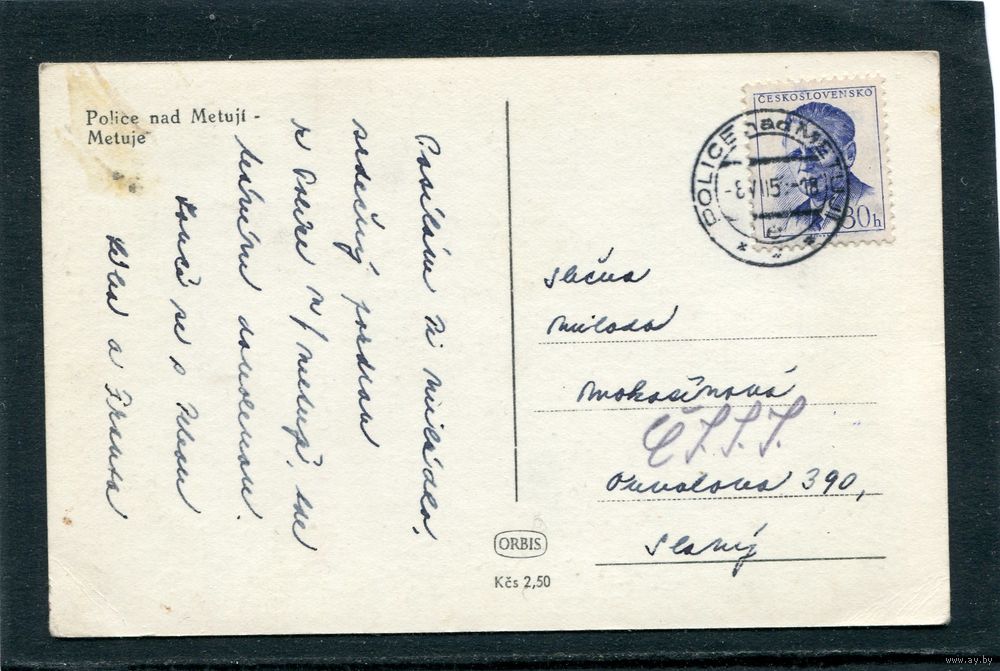 Police nad Metují -
Metuje
Posílám Ti
srdečný pozdrav
z Police n/Metují, kde
trávíme dovolenou.
Loučí se s Tebou
a Franta
ČESKOSLOVENSKO
30h
POLICE nad METUJÍ
Slečna
Milada
Mokošínová
Č.S.S.S.
Ouvalova 390,
Slaný
ORBIS
Kčs 2,50
www.ay.by